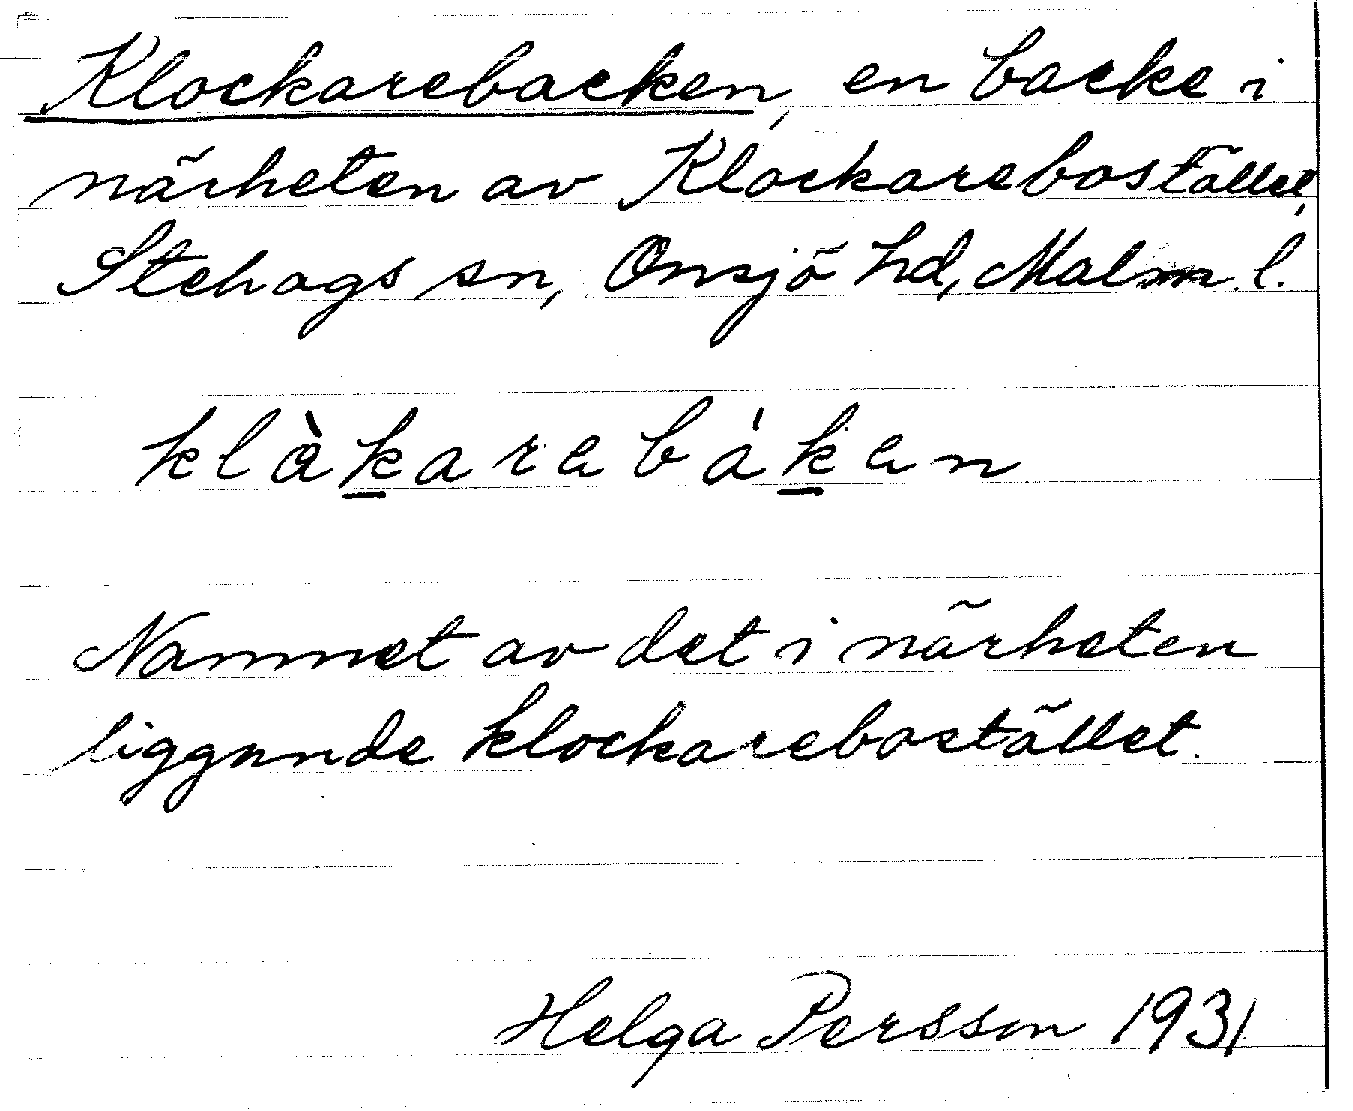 Klockarebacken, en backe i
närheten av Klockarebostället,
Stehags sn, Onsjö hd, Malm. l.
klàkarebáken
Namnet av det i närheten
liggande klockarebostället.
Helga Persson 1931